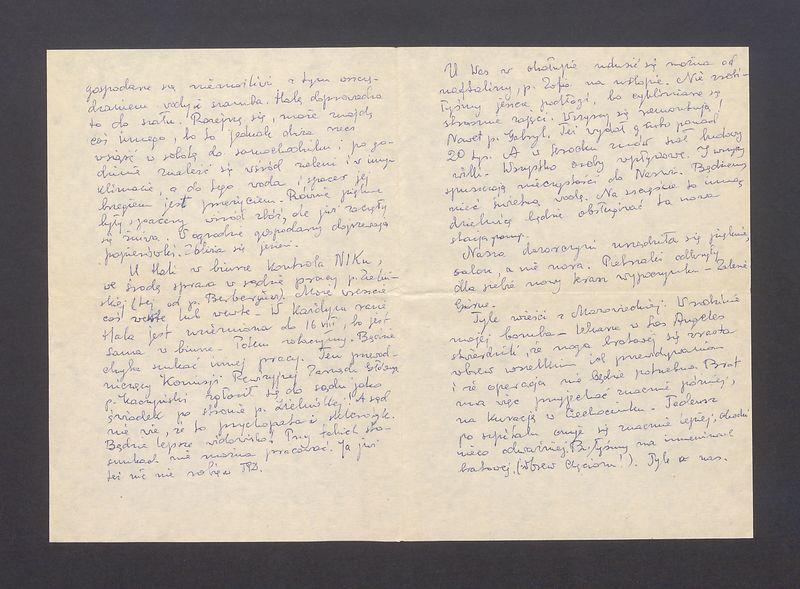 gospodarze są niemożliwi z tym oszczę-
dzaniem wody i szamba. Halę doprowadza
to do szału. Rozejrzę się, może znajdę
coś innego, bo to jednak duża rzecz
wsiąść w sobotę do samochodziku i po go-
dzinie znaleźć się wśród zieleni i w innym
klimacie, a do tego woda i spacer jej
brzegiem jest przeżyciem. Równie piękne
były spacery wśród zbóż, ale już zaczęły
się żniwa. W ogrodzie gospodarzy dojrzewają
papierówki. Zbliża się jesień.
U Hali w biurze kontrola NIKu,
we środę sprawa w sądzie pracy p. Zieliń-
skiej (tej od p. Berbergów). Może wreszcie
coś wewte lub wewte. W każdym razie
Hala jest uziemiona do 16 VIII, bo jest
sama w biurze. Potem rotacyjny. Będzie
chyba szukać innej pracy. Ten przewod-
niczący Komisji Rewizyjnej Zarządu Głównego
p. Kaczyński zgłosił się do sądu jako
świadek po stronie p. Zielińskiej! A sąd
nie wie, że to psychopata i sklerotyk.
Będzie lepsze widowisko! Przy takich sto-
sunkach nie można pracować. Ja już
też nic nie robię w TPD.
U Was w chałupie udusić się można od
naftaliny, p. Zofio na wstępie. Nie zrobi-
łyśmy jeszcze podłogi, bo cykliniarze są
strasznie zajęci. Wszyscy się remontują!
Nawet p. Gabryl. Też wydał g. auto ponad
20 tys. A w Serocku znów szał budowy
willi. Wszystko osoby wpływowe. I wszyscy
spuszczają nieczystości do Narwi. Będziemy
mieć świetną wodę. Na szczęście to inną
dzielnicę będzie obsługiwać ta nowa
stacja pomp.
Nasza dozorczyni urządziła się pięknie,
salon, a nie nora. Pietrzaki odkryły
dla siebie nowy teren wypoczynku – Zalesie
Górne.
Tyle wieści z Morawieckiej. W rodzinie
mojej bomba – lekarze w Los Angeles
stwierdzili, że noga bratowej się zrasta
wbrew wszelkim ich przewidywaniom
i że operacja nie będzie potrzebna. Brat
ma więc przyjechać znacznie później,
na kurację w Ciechocinku. Tadeusz
po szpitalu czuje się znacznie lepiej, chodzi
nieco odważniej. Byłyśmy na imieninach
bratowej, (wbrew chęciom!). Tyle o nas.